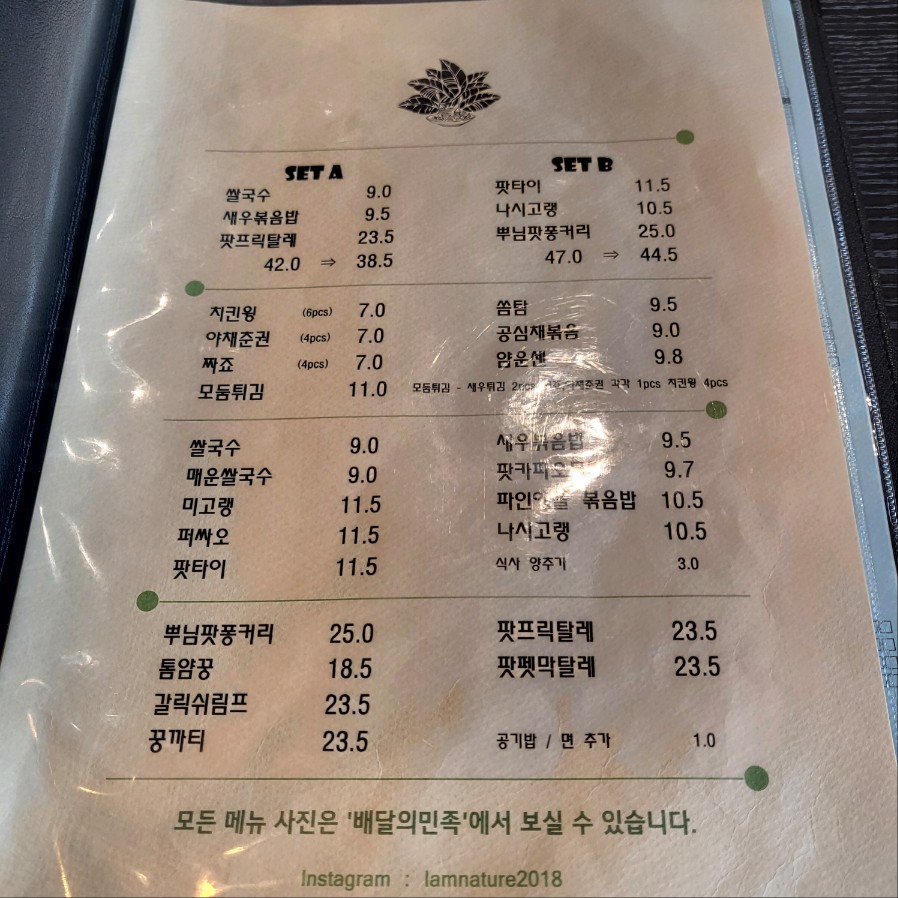 SET A
쌀국수 9.0
새우볶음밥 9.5
팟프릭탈레 23.5
42.0 ⇒ 38.5
SET B
팟타이 11.5
나시고랭 10.5
뿌님팟퐁커리 25.0
47.0 ⇒ 44.5
치킨윙 (6pcs) 7.0
야채춘권 (4pcs) 7.0
짜죠 (4pcs) 7.0
모둠튀김 11.0
쏨탐 9.5
공심채볶음 9.0
얌운센 9.8
모둠튀김 - 새우튀김 2pcs 야채춘권 각각 1pcs 치킨윙 4pcs
쌀국수 9.0
매운쌀국수 9.0
미고랭 11.5
퍼싸오 11.5
팟타이 11.5
새우볶음밥 9.5
9.7
파인애플 볶음밥 10.5
나시고랭 10.5
식사 양추가 3.0
뿌님팟퐁커리 25.0
톰얌꿍 18.5
갈릭쉬림프 23.5
꿍까티 23.5
팟프릭탈레 23.5
팟펫막탈레 23.5
공기밥 / 면 추가 1.0
모든 메뉴 사진은 '배달의민족'에서 보실 수 있습니다.
Instagram : Iamnature2018